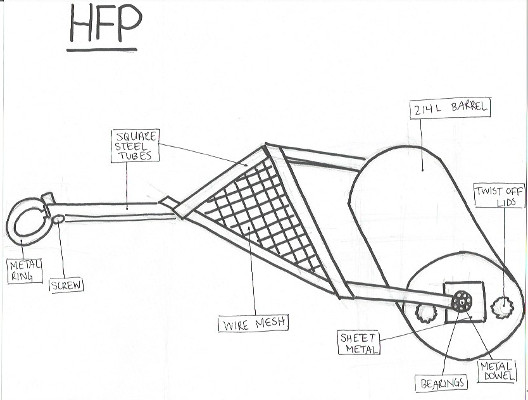 HFP
214 L BARREL
SQUARE
STEEL
TUBES
TWIST OFF
LIDS
METAL
RING
SCREW
WIRE MESH
SHEET
METAL
METAL
DOWEL
BEARINGS